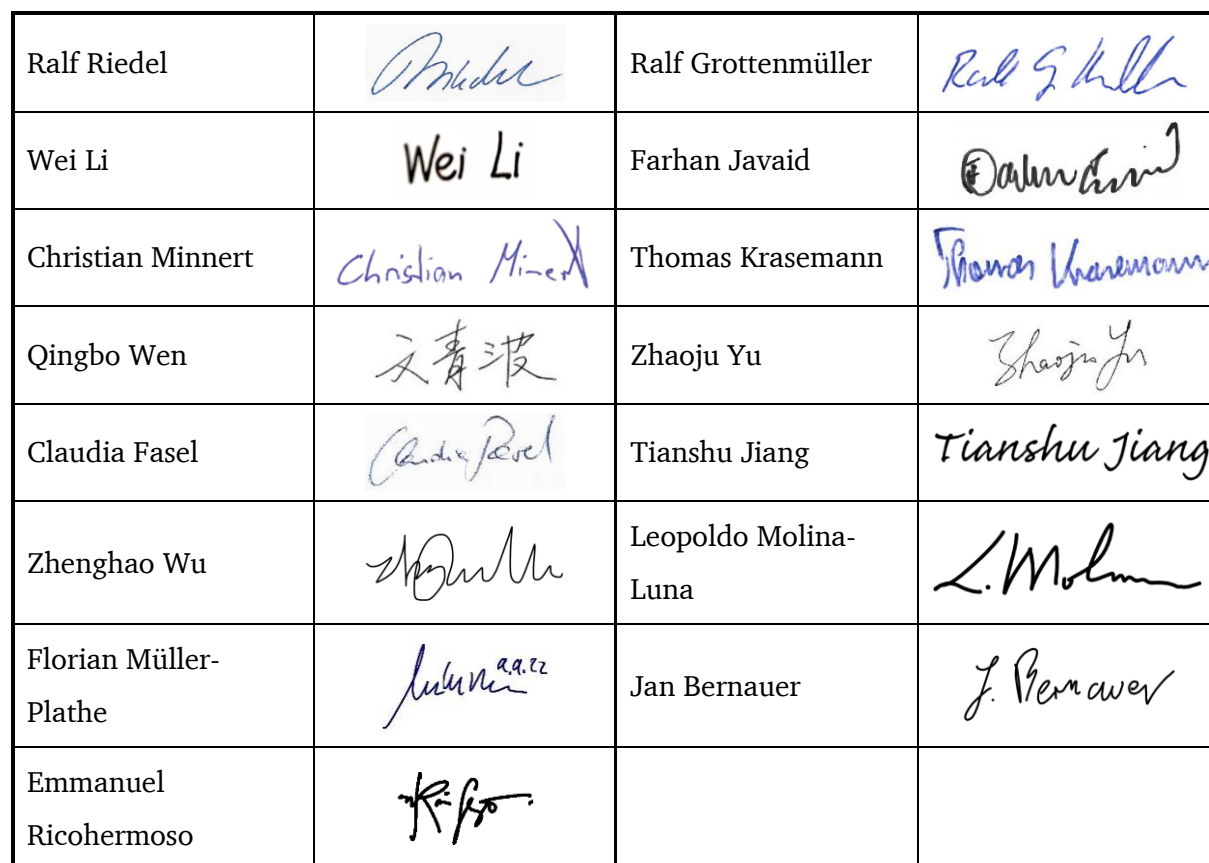 Ralf Riedel
Ralf Grottenmüller
Wei Li
Wei Li
Farhan Javaid
Christian Minnert
Christian Minert
Thomas Krasemann
Thomas Krasemann
Qingbo Wen
文青波
Zhaoju Yu
Zhaoju Yu
Claudia Fasel
Claudia Fasel
Tianshu Jiang
Tianshu Jiang
Zhenghao Wu
Leopoldo Molina-
Luna
L. Molina
Florian Müller-
Plathe
9.9.22
Jan Bernauer
J. Bernauer
Emmanuel
Ricohermoso